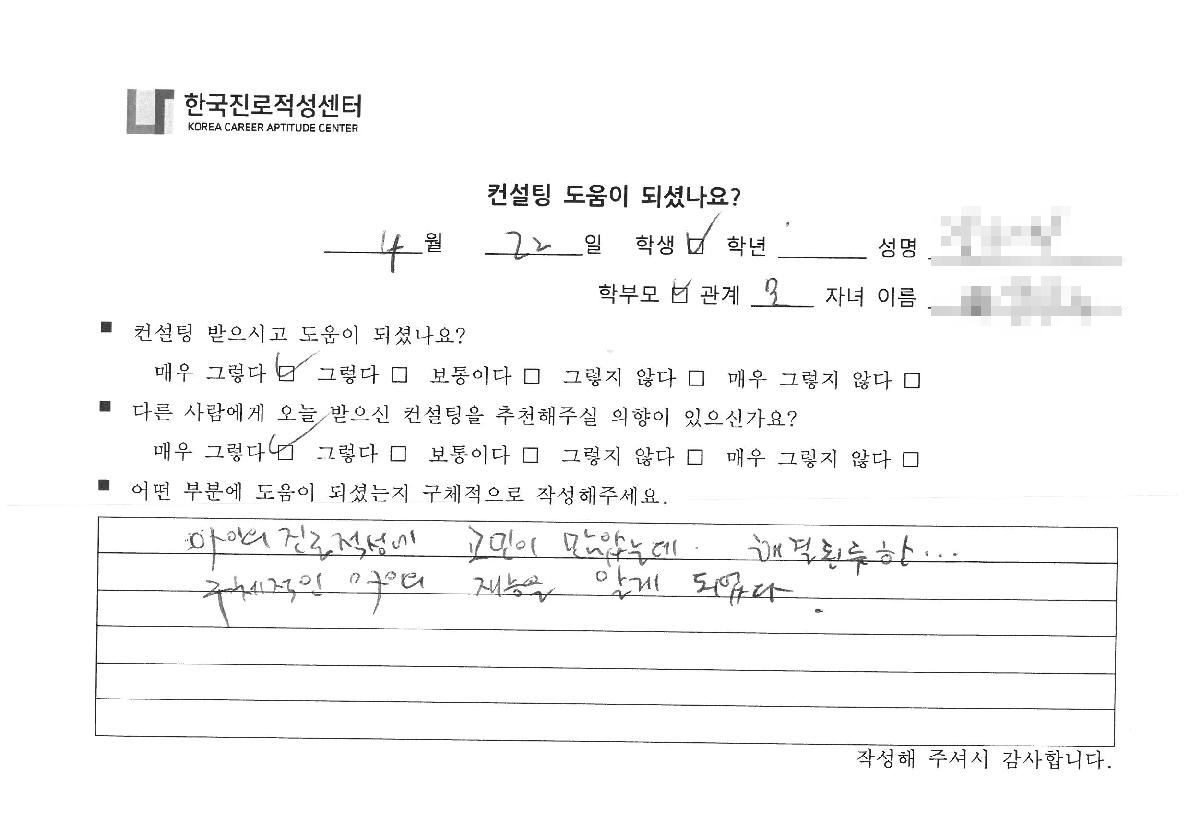 한국진로적성센터
KOREA CAREER APTITUDE CENTER
컨설팅 도움이 되셨나요?
4월 22일 학생 ☑ 학년 성명
학부모 ☑ 관계 모 자녀 이름
■ 컨설팅 받으시고 도움이 되셨나요?
매우 그렇다 ☑ 그렇다 □ 보통이다 □ 그렇지 않다 □ 매우 그렇지 않다 □
■ 다른 사람에게 오늘 받으신 컨설팅을 추천해주실 의향이 있으신가요?
매우 그렇다 ☑ 그렇다 □ 보통이다 □ 그렇지 않다 □ 매우 그렇지 않다 □
■ 어떤 부분에 도움이 되셨는지 구체적으로 작성해주세요.
아이의 진로적성에 고민이 많았는데. 해결된듯한...
구체적인 재능을 알게 되었다.
작성해 주셔시 감사합니다.